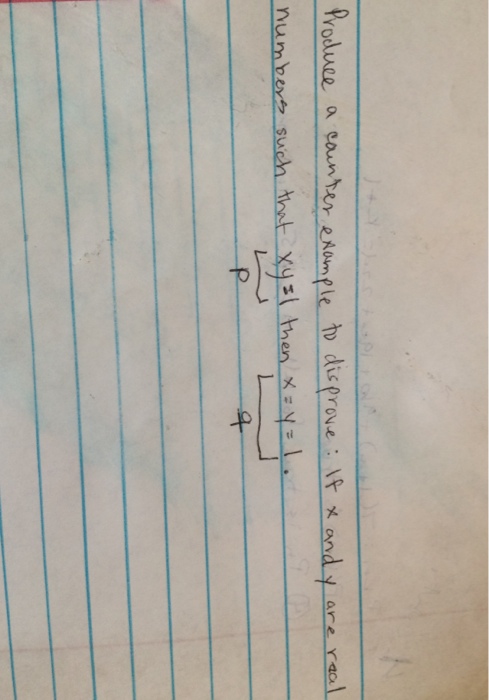 Produce a counter example to disprove: If x and y are real
numbers such that xy=1 then x=y=1.
p q